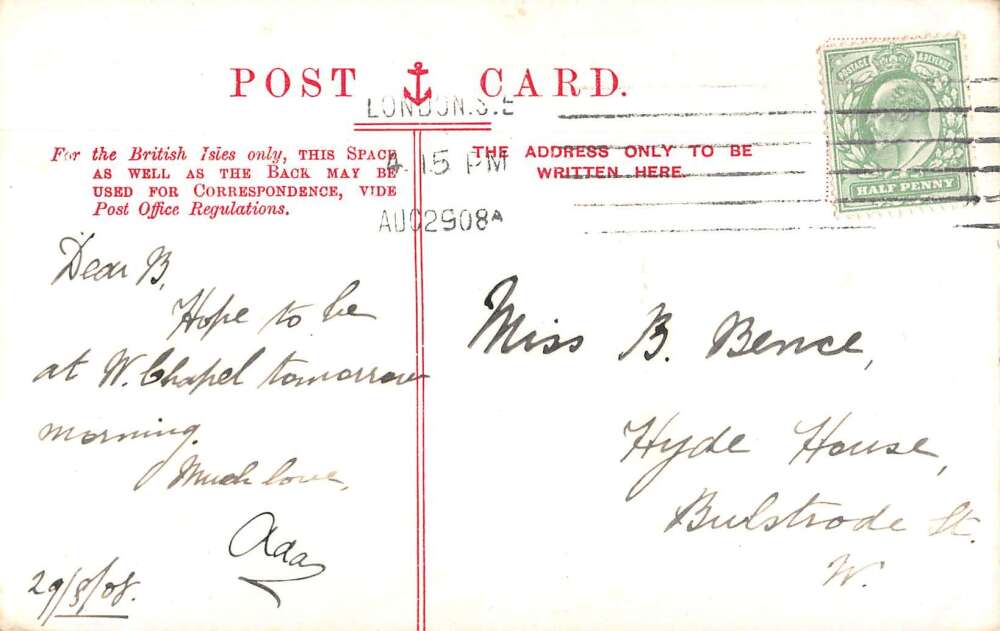 POST CARD.
LONDON.S.E
4.15 PM
AU02908A
POSTAGE & REVENUE
HALF PENNY
For the British Isles only, THIS SPACE
AS WELL AS THE BACK MAY BE
USED FOR CORRESPONDENCE, VIDE
Post Office Regulations.
THE ADDRESS ONLY TO BE
WRITTEN HERE.
Dear B,
Hope to be
at W. Chapel tomorrow
morning.
Much love,
Ada
29/8/08.
Miss B. Bence,
Hyde House,
Bulstrode St.
W.